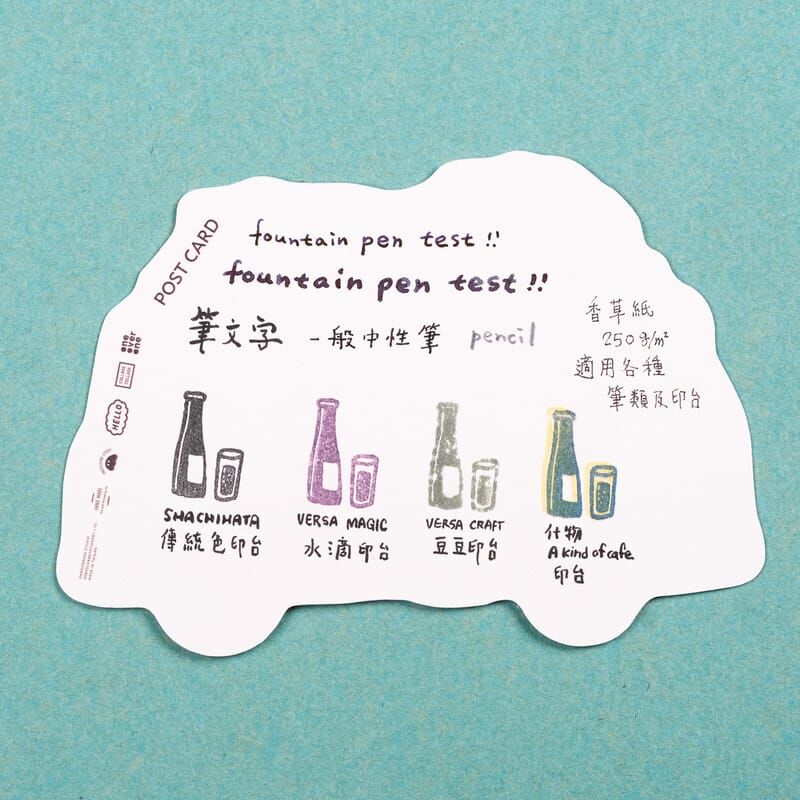 POST CARD
fountain pen test !!
fountain pen test !!
筆文字 一般中性筆 pencil
香草紙
250g/m²
適用各種
筆類及印台
one
over
one
COLLAGE
COLLAGE
HELLO
SHACHIHATA
傳統色印台
VERSA MAGIC
水滴印台
VERSA CRAFT
豆豆印台
什物
A kind of cafe
印台